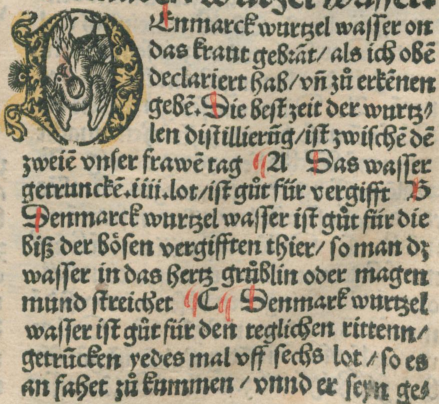 Denmarck wurtzel wasser on
das kraut gebrāt/ als ich obē
declariert hab/ vñ zů erkēnen
gebē. Die best zeit der wurtz⸗
len distillierūg/ ist zwischē dē
zweiē vnser frawē tag A Das wasser
getrunckē.iiii.lot/ist gůt für vergifft B
Denmarck wurtzel wasser ist gůt für die
biß der bösen vergifften thier/ so man dz
wasser in das hertz grüblin oder magen
mund streichet C Denmark wurtzel
wasser ist gůt für den teglichen rittenn/
getrūcken yedes mal vff sechs lot / so es
an fahet zů kummen / vnnd er seyn ges